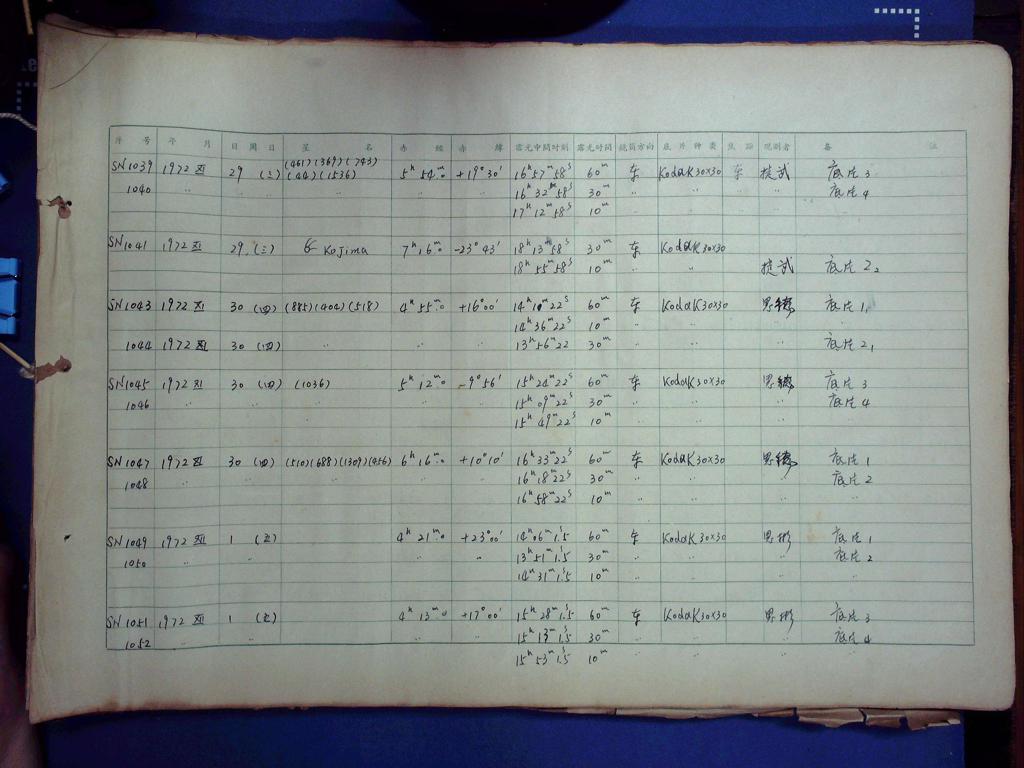 序 号 年 月 日 周 日 星 名 赤 经 赤 纬 露光中间时刻 露光时间 镜筒方向 底片种类 焦距 观测者 备 注
(461)(369)(743)
SN1039 1972 XI 29 (三) (44)(1536) 5h 54m.0 +19°30' 16h57m58s 60m 东 KodaK30x30 东 底片3
1040 〃 16h32m58s 30m 〃 〃 底片4
17h12m58s 10m 〃 〃
SN1041 1972 XI 29 (三) Kojima 7h 16m.0 -23°43' 18h13m58s 30m 东 KodaK30x30
18h55m58s 10m 〃 〃 底片2
SN1043 1972 XI 30 (四) (885)(404)(518) 4h 55m.0 +16°00' 14h10m22s 60m 东 KodaK30x30 底片1
14h36m22s 10m 〃 〃
1044 1972 XI 30 (四) 〃 〃 〃 13h56m22 30m 〃 〃 底片2
SN1045 1972 XI 30 (四) (1036) 5h 12m.0 -9°56' 15h24m22s 60m 东 KodaK30x30 底片3
1046 〃 〃 〃 〃 15h09m22s 30m 〃 〃 底片4
15h49m22s 10m 〃 〃
SN1047 1972 XI 30 (四) (510)(688)(1309)(456) 6h 16m.0 +10°10' 16h33m22s 60m 东 KodaK30x30 底片1
1048 〃 16h18m22s 30m 〃 〃 底片2
16h58m22s 10m 〃 〃
SN1049 1972 XII 1 (五) 4h 21m.0 +23°00' 14h06m1s.5 60m 东 KodaK30x30 底片1
1050 〃 〃 〃 13h51m1s.5 30m 〃 〃 底片2
14h31m1s.5 10m 〃 〃
SN1051 1972 XII 1 (五) 4h 13m.0 +17°00' 15h28m1s.5 60m 东 KodaK30x30 底片3
1052 〃 〃 〃 15h13m1s.5 30m 〃 〃 底片4
15h53m1s.5 10m 〃 〃